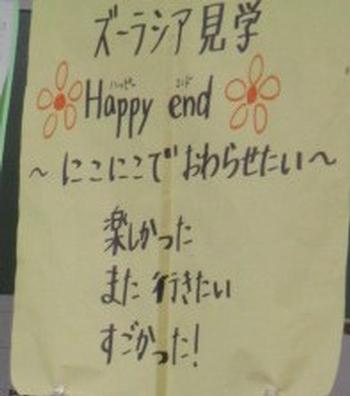 ズーラシア見学
ハッピー エンド
Happy end
～にこにこでおわらせたい～
楽しかった
また行きたい
すごかった!